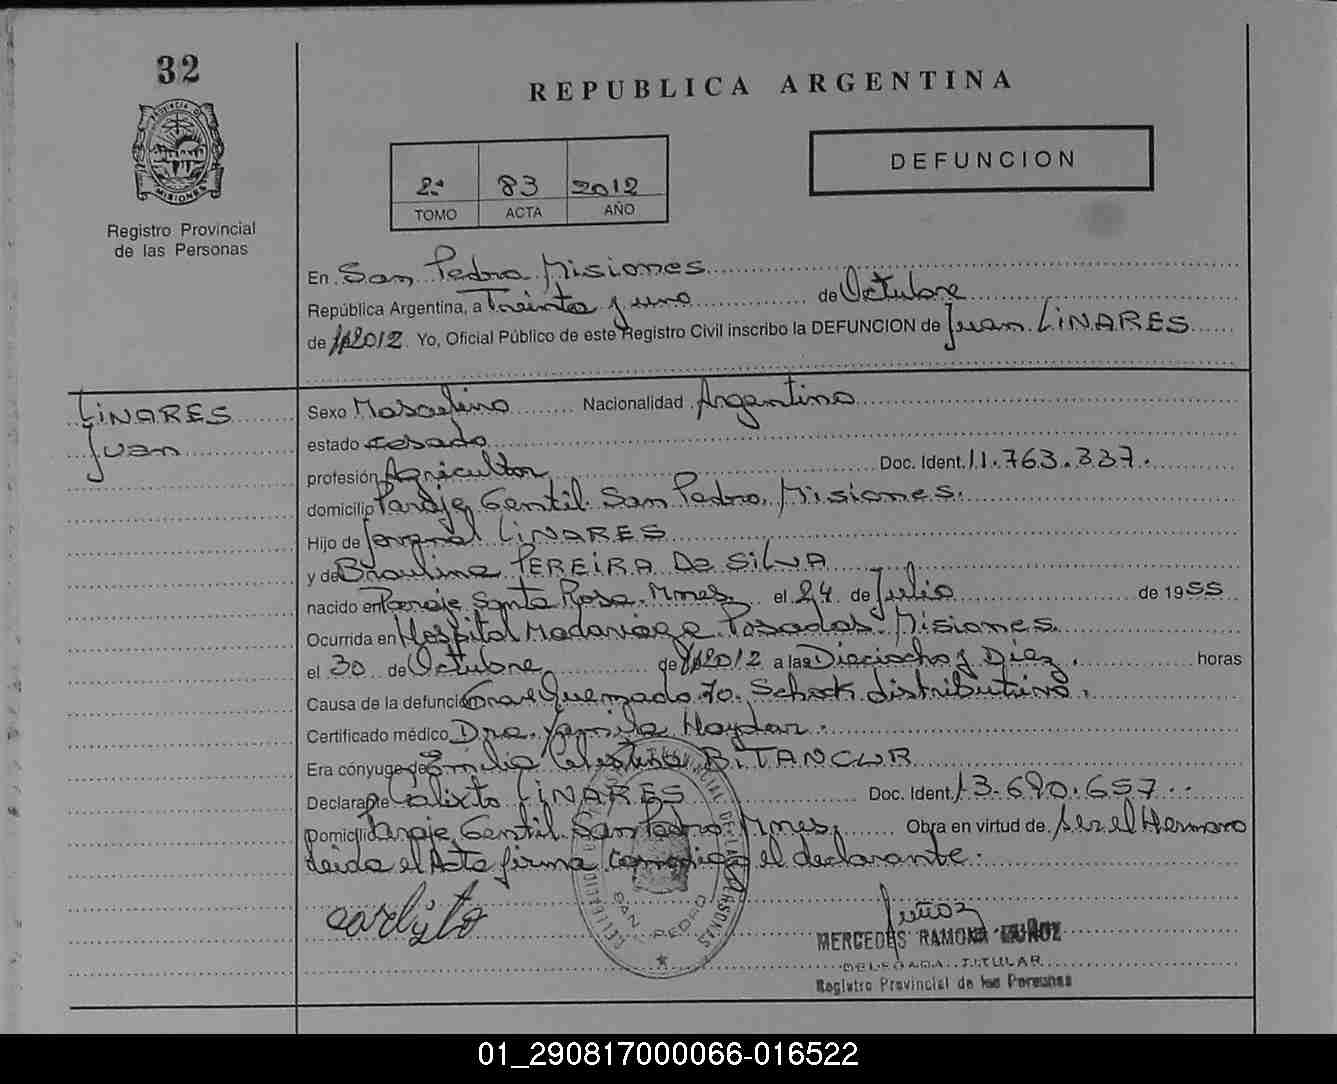 32
REPUBLICA ARGENTINA
PROVINCIA DE
MISIONES
Registro Provincial
de las Personas
2º 83 2012
TOMO ACTA AÑO
DEFUNCION
En San Pedro Misiones
República Argentina, a Treinta y uno de Octubre
de 2012 Yo, Oficial Público de este Registro Civil inscribo la DEFUNCION de Juan LINARES
LINARES
Juan
Sexo Masculino Nacionalidad Argentino
estado casado
profesión Agricultor Doc. Ident. 11.763.337.
domicilio Paraje Gentil San Pedro, Misiones.
Hijo de LINARES
y de Braulina PEREIRA De SILVA
nacido en Paraje Santa Rosa. Mnes. el 24 de Julio de 1955
Ocurrida en Hospital Madariaga Posadas. Misiones.
el 30 de Octubre de 2012 a las Dieciocho y Diez. horas
Causa de la defunción Gran Quemado 70. Schock distributivo.
Certificado médico Dra. Yamila Haydar.
Era cónyuge de Emilia Celestina BITANCUR
Declarante Calixto LINARES Doc. Ident. 13.690.657
Domicilio Paraje Gentil San Pedro Mnes. Obra en virtud de Ser el Hermano
Leida el Acta firma conmigo el declarante.
SAN PEDRO
Muñoz
MERCEDES RAMONA MUÑOZ
DELEGADA TITULAR
Registro Provincial de las Personas
01_290817000066-016522